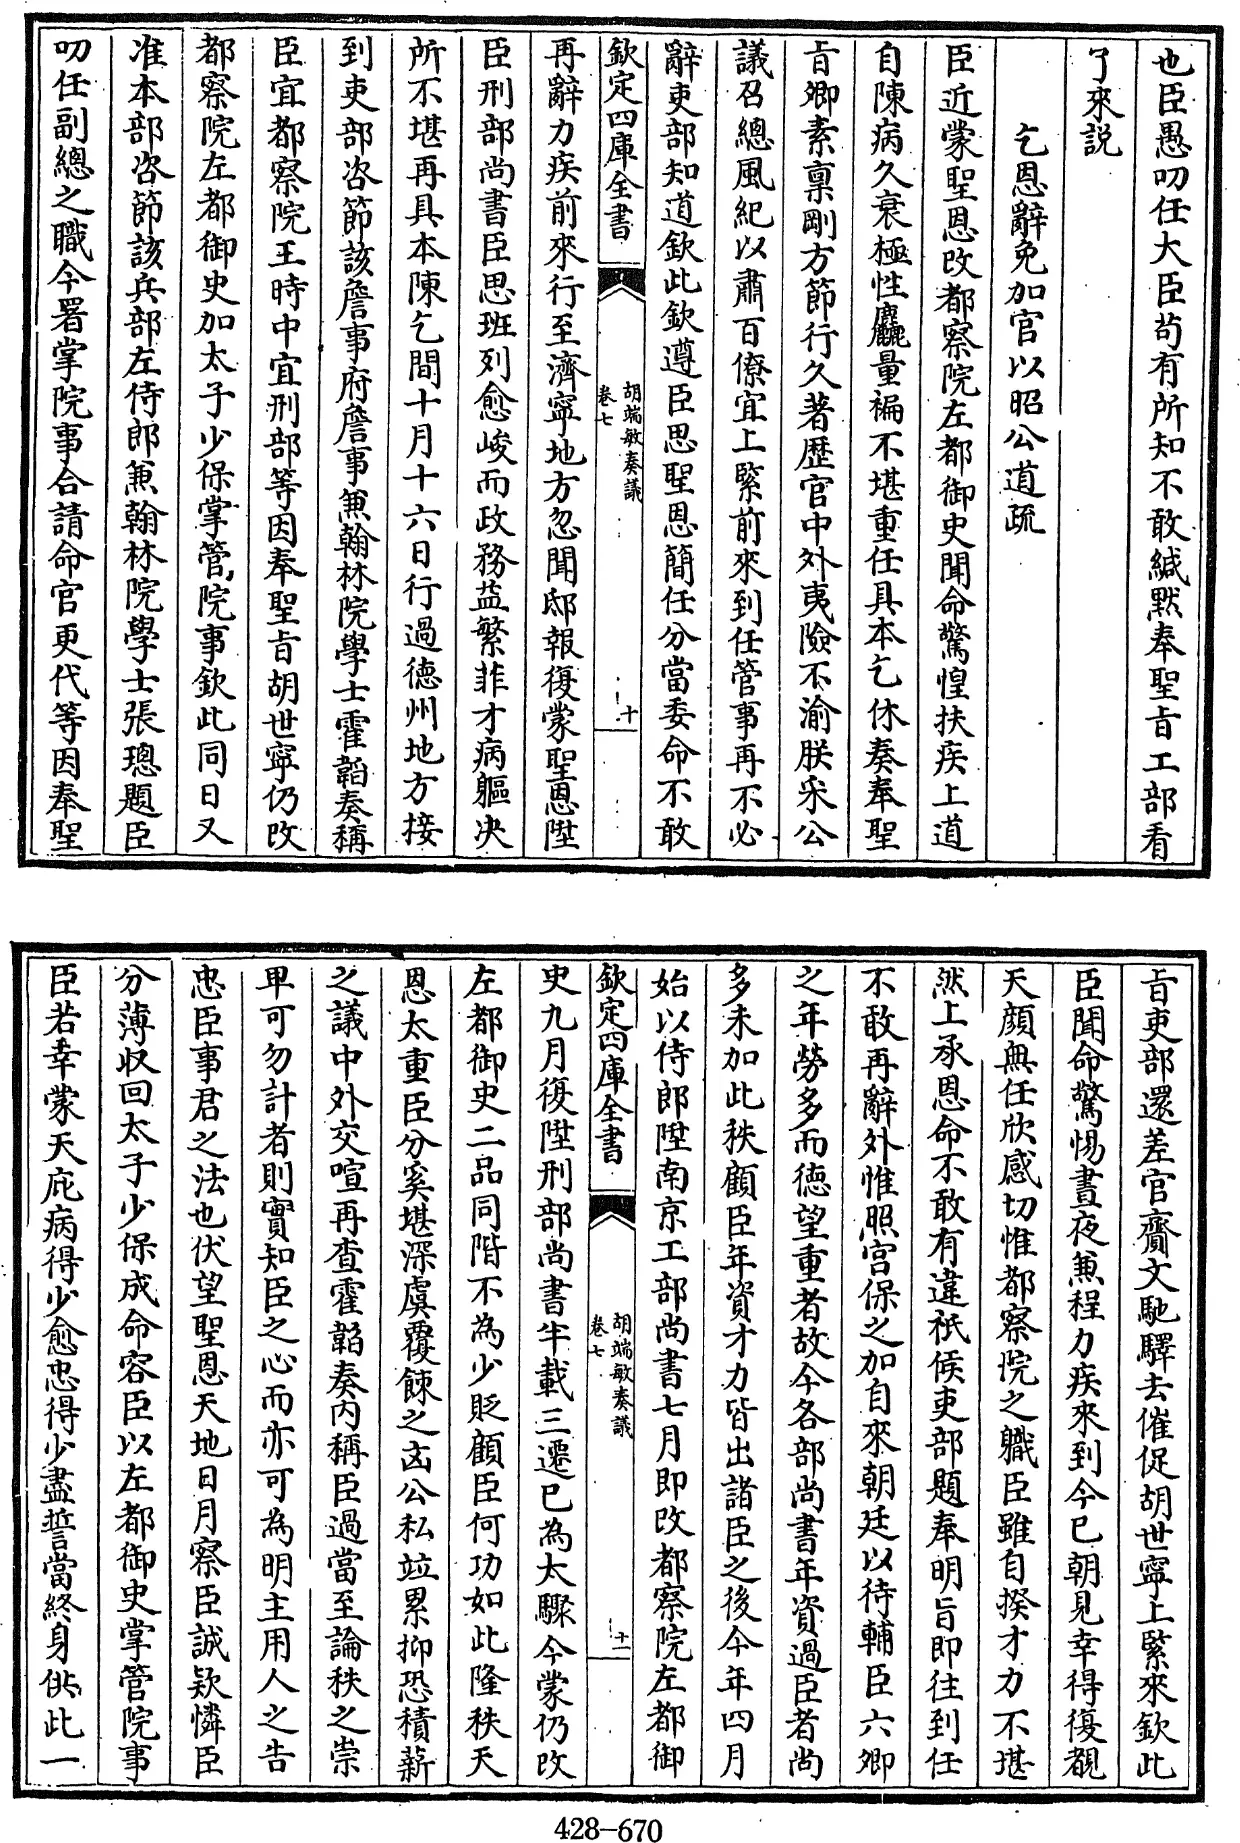 也臣愚叨任大臣苟有所知不敢緘默奉聖旨工部看
了來説
乞恩辭免加官以昭公道疏
臣近蒙聖恩改都察院左都御史聞命驚惶扶疾上道
自陳病久衰極性麤量褊不堪重任具本乞休奏奉聖
旨卿素稟剛方節行久著歴官中外夷險不渝朕采公
議召總風紀以肅百僚宜上緊前來到任管事再不必
辭吏部知道欽此欽遵臣思聖恩簡任分當委命不敢
欽定四庫全書
胡端敏奏議
卷七
十
再辭力疾前來行至濟寧地方忽聞邸報復蒙聖恩陞
臣刑部尚書臣思班列愈峻而政務益繁菲才病軀决
所不堪再具本陳乞間十月十六日行過德州地方接
到吏部咨節該詹事府詹事兼翰林院學士霍韜奏稱
臣宜都察院王時中宜刑部等因奉聖旨胡世寧仍改
都察院左都御史加太子少保掌管院事欽此同日又
准本部咨節該兵部左侍郎兼翰林院學士張璁題臣
叨任副總之職今署掌院事合請命官更代等因奉聖
旨吏部還差官齎文馳驛去催促胡世寧上緊來欽此
臣聞命驚惕晝夜兼程力疾來到今已朝見幸得復覩
天顔無任欣感切惟都察院之職臣雖自揆才力不堪
然上承恩命不敢有違祇候吏部題奉明旨即往到任
不敢再辭外惟照宫保之加自來朝廷以待輔臣六卿
之年勞多而德望重者故今各部尚書年資過臣者尚
多未加此秩顧臣年資才力皆出諸臣之後今年四月
始以侍郎陞南京工部尚書七月即改都察院左都御
欽定四庫全書
胡端敏奏議
卷七
十一
史九月復陞刑部尚書半載三遷已為太驟今蒙仍改
左都御史二品同階不為少貶顧臣何功如此隆秩天
恩太重臣分奚堪深虞覆餗之凶公私竝累抑恐積薪
之議中外交喧再查霍韜奏内稱臣過當至論秩之崇
卑可勿計者則實知臣之心而亦可為明主用人之告
忠臣事君之法也伏望聖恩天地日月察臣誠欵憐臣
分薄收回太子少保成命容臣以左都御史掌管院事
臣若幸蒙天庇病得少愈忠得少盡誓當終身供此一
428-670